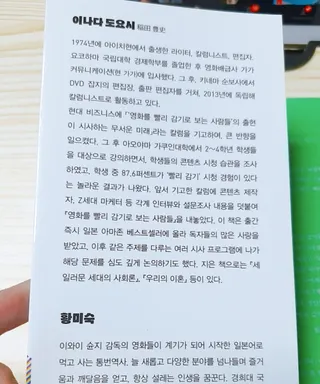 이나다 도요시 稲田 豊史
1974년에 아이치현에서 출생한 라이터, 칼럼니스트, 편집자.
요코하마 국립대학 경제학부를 졸업한 후 영화배급사 가가
커뮤니케이션(현 가가)에 입사했다. 그 후, 키네마 순보사에서
DVD 잡지의 편집장, 출판 편집자를 거쳐, 2013년에 독립해
칼럼니스트로 활동하고 있다.
현대 비즈니스에 「'영화를 빨리 감기로 보는 사람들'의 출현
이 시사하는 무서운 미래」라는 칼럼을 기고하며, 큰 반향을
일으켰다. 그 후 아오야마 가쿠인대학에서 2~4학년 학생들
을 대상으로 강의하면서, 학생들의 콘텐츠 시청 습관을 조사
하였고, 학생 중 87.6퍼센트가 '빨리 감기' 시청 경험이 있다
는 놀라운 결과가 나왔다. 앞서 기고한 칼럼에 콘텐츠 제작
자, Z세대 마케터 등 각계 인터뷰와 설문조사 내용을 덧붙여
『영화를 빨리 감기로 보는 사람들』을 내놓았다. 이 책은 출간
즉시 일본 아마존 베스트셀러에 올라 독자들의 많은 사랑을
받았고, 이후 같은 주제를 다루는 여러 시사 프로그램에 나가
해당 문제를 심도 깊게 논의하기도 했다. 지은 책으로는 『세
일러문 세대의 사회론』, 『우리의 이혼』 등이 있다.
황미숙
이와이 슌지 감독의 영화들이 계기가 되어 시작한 일본어로
먹고 사는 통번역사. 늘 새롭고 다양한 분야를 넘나들며 즐거
움과 깨달음을 얻고, 항상 설레는 인생을 꿈꾼다. 경희대 국